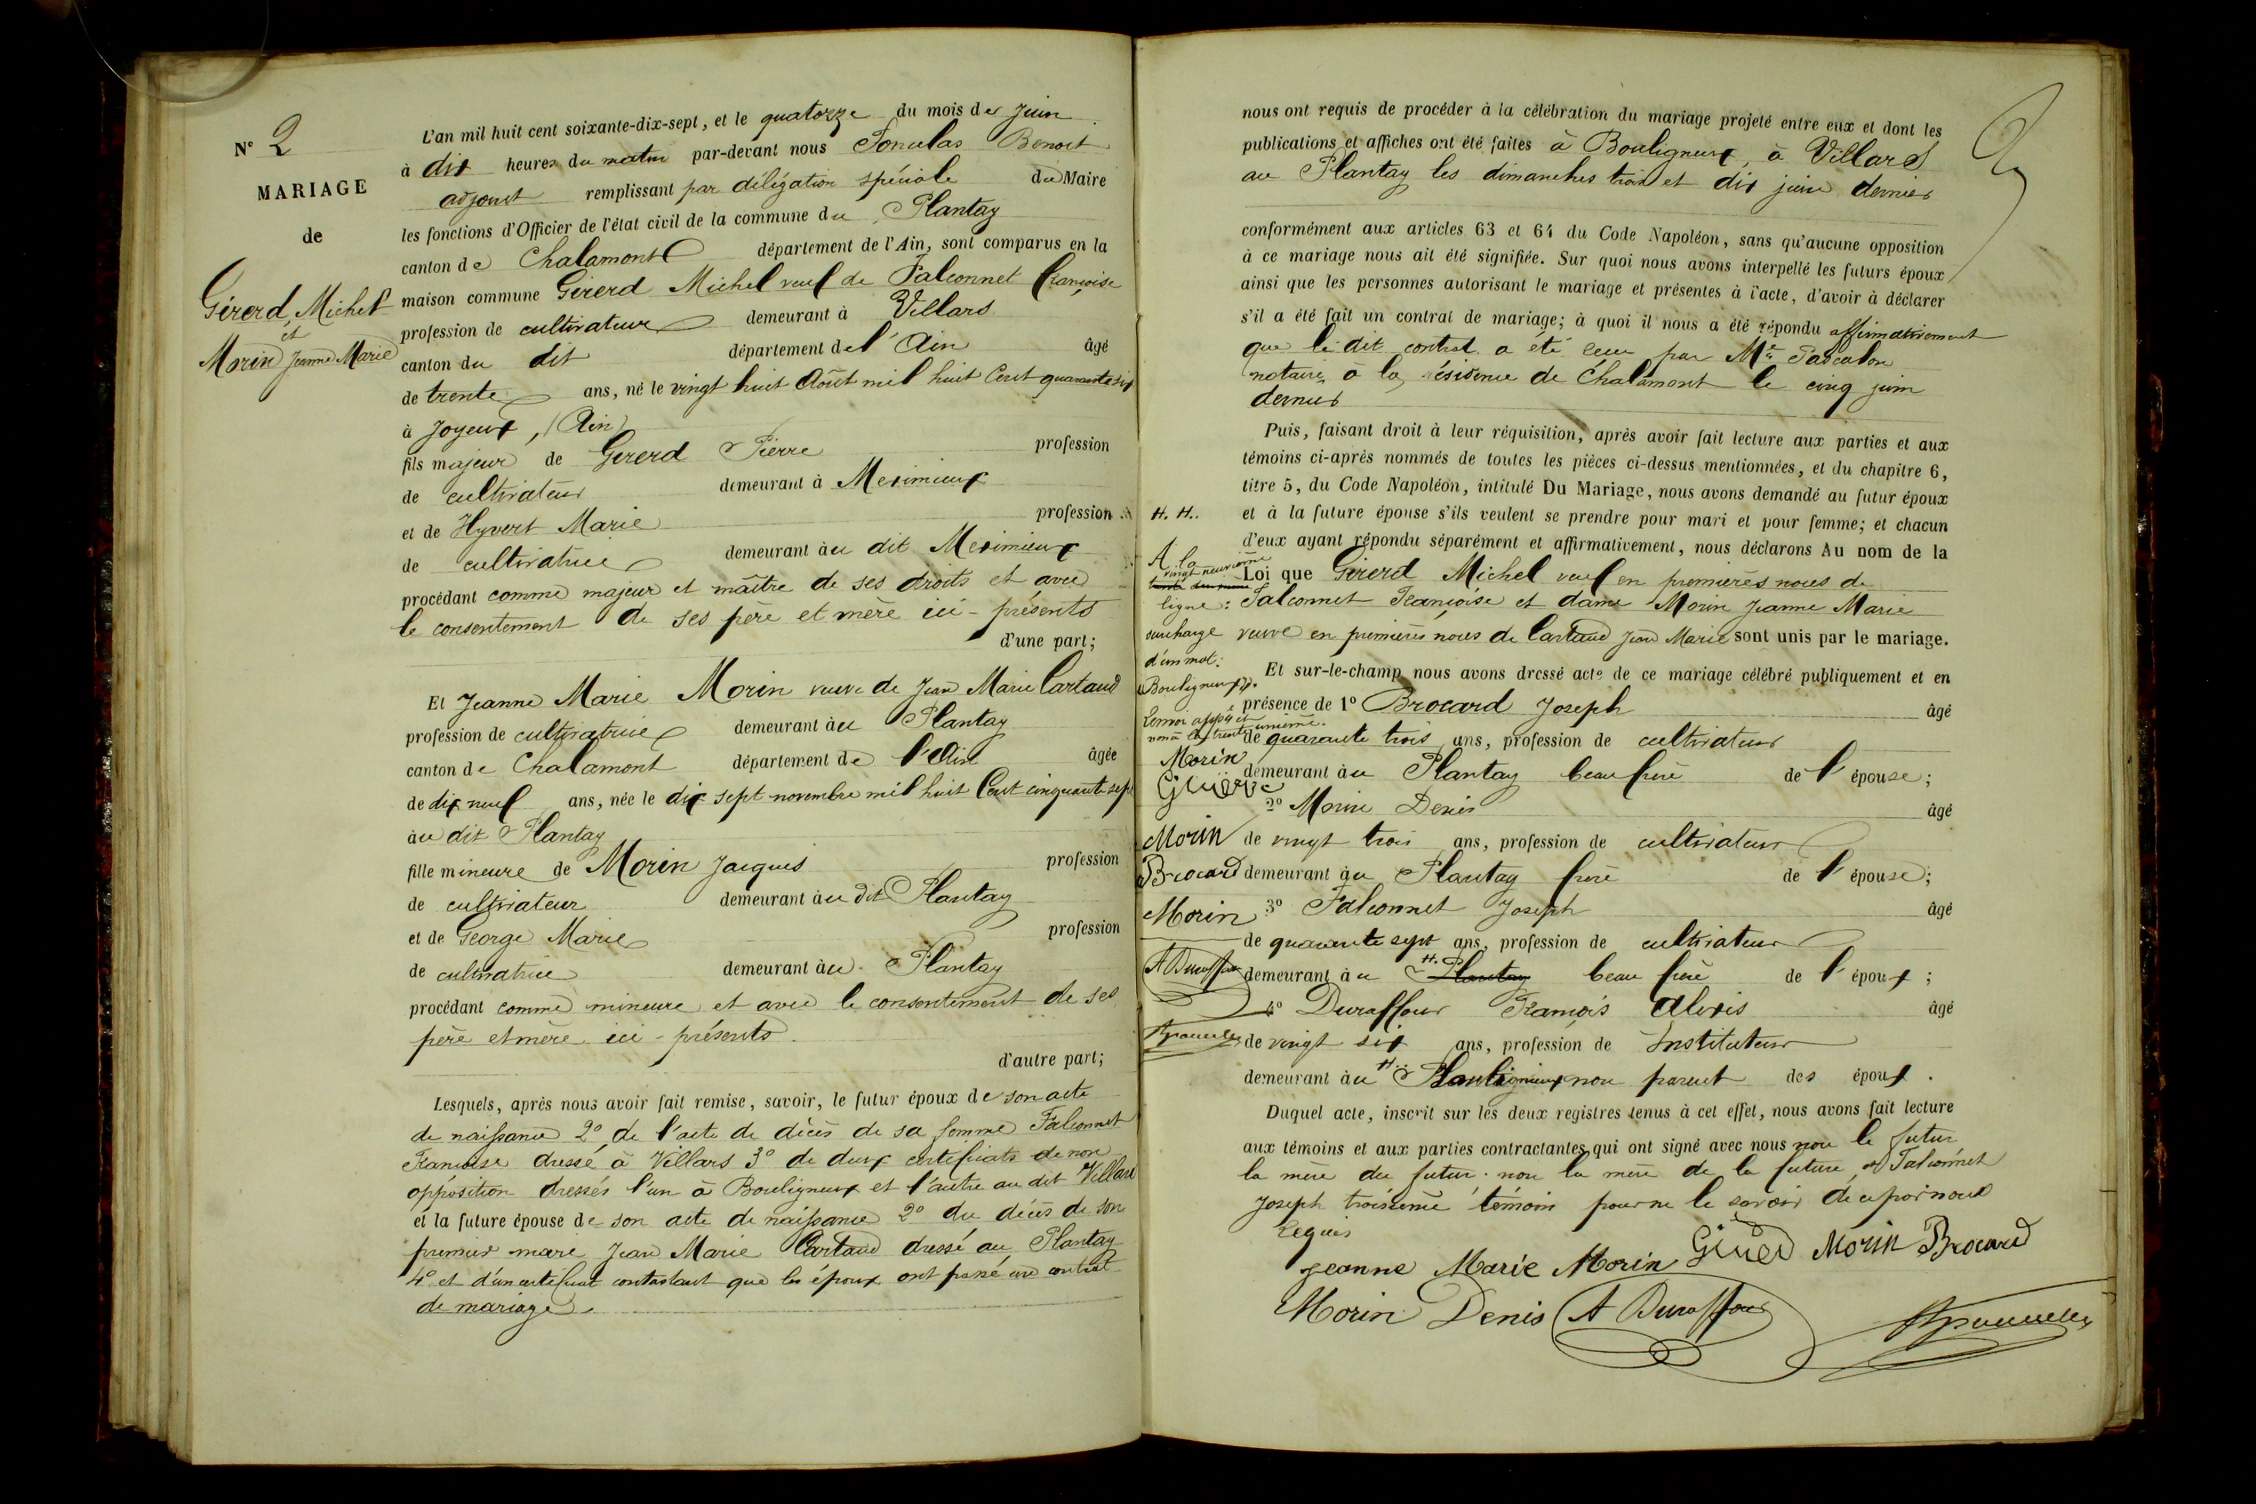 Nº 2
MARIAGE
de
Girerd Michel
et
Morin Jeanne Marie
L'an mil huit cent soixante-dix-sept, et le quatorze du mois de juin
à dix heures du matin par-devant nous Benoit
adjoint remplissant par délégation spéciale du Maire
les fonctions d'Officier de l'état civil de la commune du Plantay
canton de Chalamont département de l'Ain, sont comparus en la
maison commune Girerd Michel veuf de Falconnet Françoise
profession de cultivateur demeurant à Villars
canton du dit département de l'Ain âgé
de trente ans, né le vingt huit Août mil huit Cent quarante six
à Joyeux, (Ain)
fils majeur de Girerd Pierre profession
de cultivateur demeurant à Meximieux
et de Hyvert Marie profession
de cultivatrice demeurant au dit Meximieux
procédant comme majeur et maître de ses droits et avec
le consentement de ses père et mère ici-présents
d'une part;
Et Jeanne Marie Morin veuve de Jean Marie Cartaud
profession de cultivatrice demeurant au Plantay
canton de Chalamont département de l'Ain âgée
de dix neuf ans, née le dix sept novembre mil huit Cent cinquante sept
au dit Plantay
fille mineure de Morin Jacques profession
de cultivateur demeurant au dit Plantay
et de George Marie profession
de cultivatrice demeurant au Plantay
procédant comme mineure et avec le consentement de ses
père et mère ici-présents.
d'autre part;
Lesquels, après nous avoir fait remise, savoir, le futur époux de son acte
de naissance 2º de l'acte de décès de sa femme Falconnet
Françoise dressé à Villars 3º de deux certificats de non
opposition dressés l'un à Bouligneux et l'autre au dit Villars
et la future épouse de son acte de naissance 2º du décès de son
premier mari Jean Marie Cartaud dressé au Plantay
4º et d'un certificat contastant que les époux ont passé un contrat
de mariage.
nous ont requis de procéder à la célébration du mariage projeté entre eux et dont les
publications et affiches ont été faites à Bouligneux, à Villars
au Plantay les dimanches trois et dix juin dernier
conformément aux articles 63 et 64 du Code Napoléon, sans qu'aucune opposition
à ce mariage nous ait été signifiée. Sur quoi nous avons interpellé les futurs époux
ainsi que les personnes autorisant le mariage et présentes à l'acte, d'avoir à déclarer
s'il a été fait un contrat de mariage; à quoi il nous a été répondu affirmativement
que le dit contrat a été par Me
notaire à la résidence de Chalamont le cinq juin
dernier
Puis, faisant droit à leur réquisition, après avoir fait lecture aux parties et aux
témoins ci-après nommés de toutes les pièces ci-dessus mentionnées, et du chapitre 6,
titre 5, du Code Napoléon, intitulé Du Mariage, nous avons demandé au futur époux
et à la future épouse s'ils veulent se prendre pour mari et pour femme; et chacun
d'eux ayant répondu séparément et affirmativement, nous déclarons Au nom de la
Loi que Girerd Michel veuf en premières noces de
Falconnet Françoise et dame Morin Jeanne Marie
veuve en premières noces de Cartaud Jean Marie sont unis par le mariage.
Et sur-le-champ nous avons dressé acte de ce mariage célébré publiquement et en
présence de 1º Brocard Joseph âgé
de quarante trois ans, profession de cultivateur
demeurant au Plantay beau frère de l'épouse;
2º Morin Denis âgé
de vingt trois ans, profession de cultivateur
demeurant au Plantay frère de l'épouse;
3º Falconnet Joseph âgé
de quarante sept ans, profession de cultivateur
demeurant à H. Plantay beau frère de l'époux;
4º Duraffour François Alexis âgé
de vingt six ans, profession de Instituteur
demeurant au H. non parent des époux.
Duquel acte, inscrit sur les deux registres tenus à cet effet, nous avons fait lecture
aux témoins et aux parties contractantes qui ont signé avec nous non le futur
la mère du futur. non la mère de la future et Falconnet
Joseph troisième témoin pour ne le savoir de ce par nous
requis
Jeanne Marie Morin Girerd Morin Brocard
Morin Denis A Duraffour
H. H..
A la
vingt neuvième
ligne:
surcharge
d'un mot:
Bouligneux
Morin
Girerd
Morin
Brocard
Morin
A Duraffour